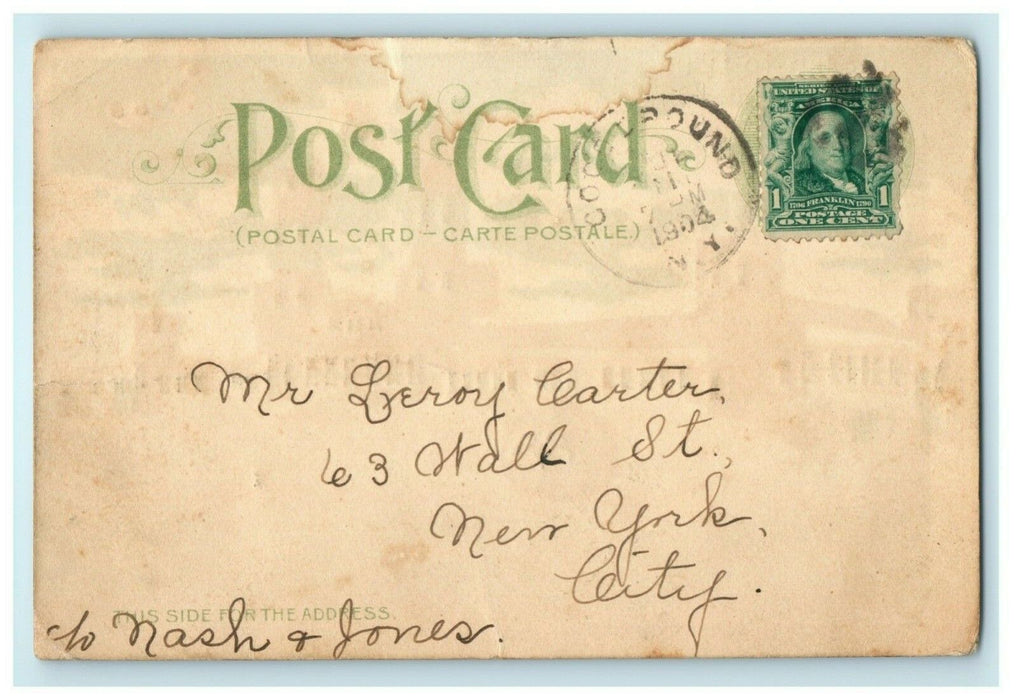 POST CARD
(POSTAL CARD – CARTE POSTALE.)
POUND
11
1904
N.Y.
SERIES 1902
UNITED STATES OF
AMERICA
1706 FRANKLIN 1790
1 POSTAGE 1
ONE CENT
Mr Leroy Carter,
63 Wall St.,
New York,
City.
THIS SIDE FOR THE ADDRESS.
c/o Nash & Jones.